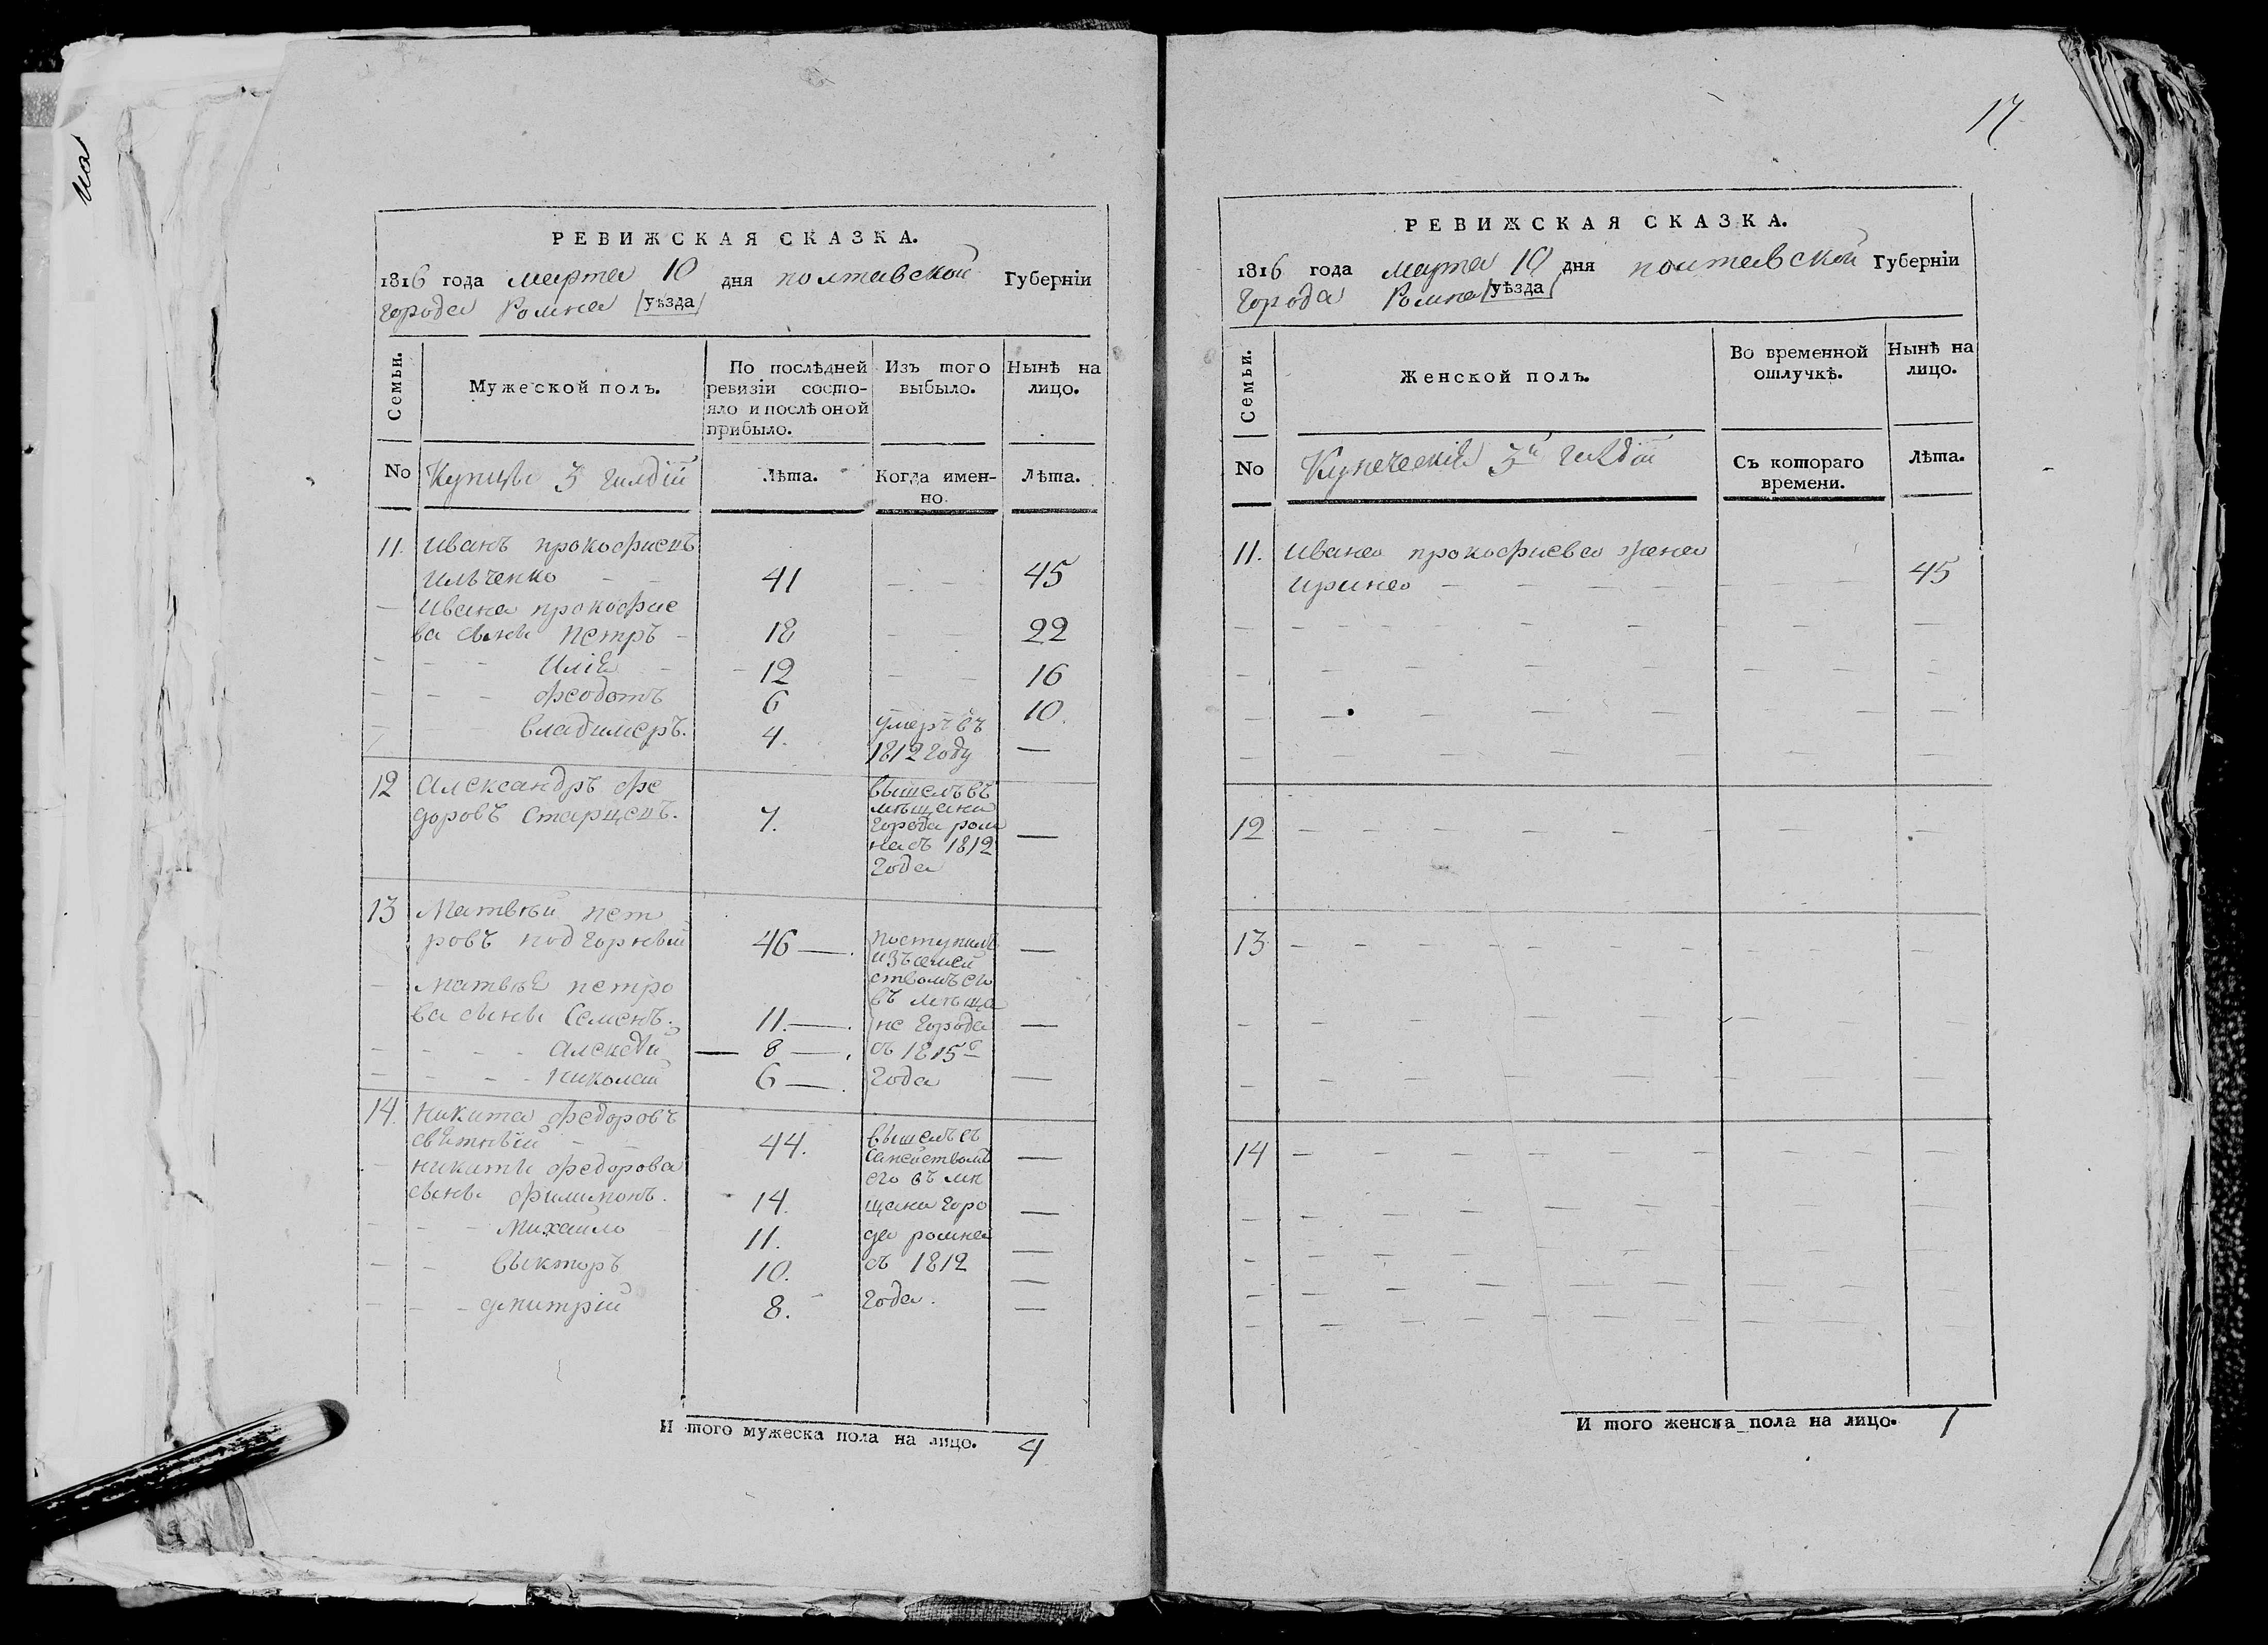 на
РЕВИЖСКАЯ СКАЗКА.
1816 года марта 10 дня полтавской Губерніи
города Ромна уѣзда
Семьи.
Мужеской полъ.
По послѣдней
ревизіи состо-
яло и послѣ оной
прибыло.
Изъ того
выбыло.
Нынѣ на
лицо.
No Купцы 3 гилдіи
Лѣта.
Когда имен-
но.
Лѣта.
11. Иванъ прокофиевъ
Ильченко - - 41 - - 45
- Ивана прокофие
ва сынъ Петръ - 18 - 22
- - - Илія - - 12 - - 16
- - - Феодотъ 6 10.
- - Владимеръ. 4. умеръ въ
1812 году —
12 Александръ фе
доровъ Старцевъ. 7. вышелъ въ
мѣщани
города ром
на съ 1812
года —
13 Матвѣй пет
ровъ подгорный 46 —. поступилъ —
изъ семей
- Матвѣя петро ствомъ его
въ мѣща
ва сынъ Семенъ. 11. —. не города —
- - - - Алексѣй — 8 —. съ 1815г
- - - - Николай 6 —. года —
14. Никита федоровъ
свѣтный - - 44. вышелъ съ
семействомъ —
- никиты федорова его въ мѣ
сынъ филимонъ. 14. щани горо —
- - - Михайло 11. да ромна —
- - Выкторъ 10. съ 1812 —
- - - дмитрій 8. года. —
И того мужеска пола на лицо. 4
17.
РЕВИЖСКАЯ СКАЗКА.
1816 года марта 10 дня полтавской Губерніи
города Ромна уѣзда
Семьи.
Женской полъ.
Во временной
отлучкѣ.
Нынѣ на
лицо.
No Купеческія 3й гилдіи
Съ котораго
времени.
Лѣта.
11. Ивана прокофиева жена
ирина - - - - - - 45
12 - - - - - - - - -
13 - - - - - - - - -
14 - - - - - - - - -
И того женска пола на лицо. 1